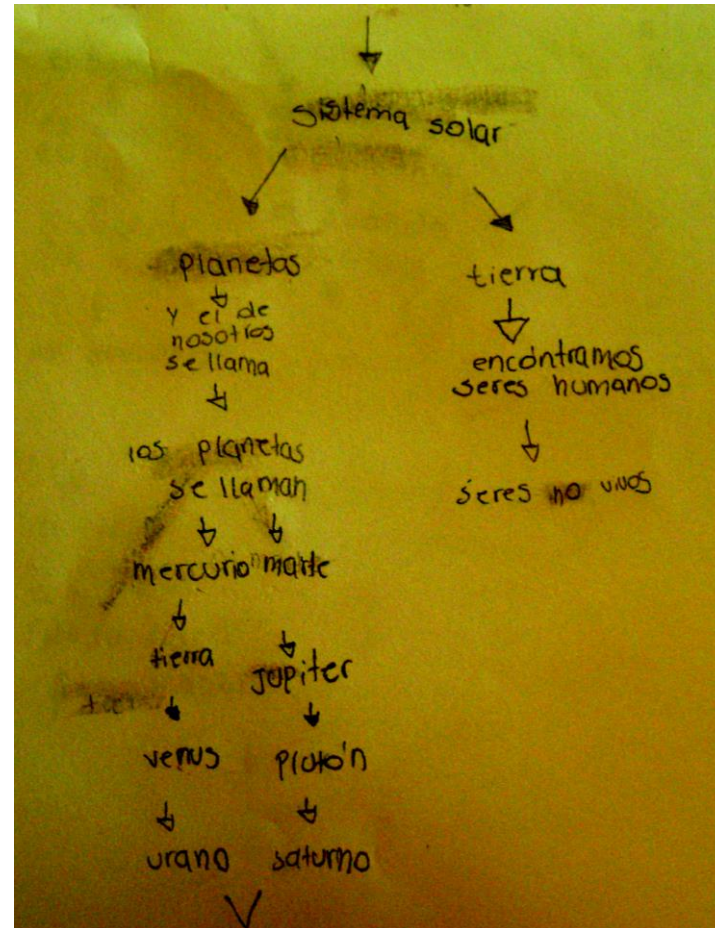 sistema solar
planetas
y el de
nosotros
se llama
los planetas
se llaman
mercurio marte
tierra
jupiter
venus plutón
urano saturno
tierra
encontramos
seres humanos
seres no vivos